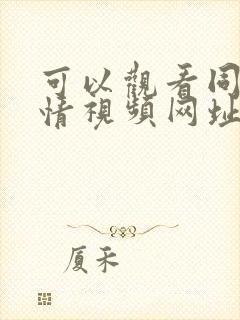 可以觀看同
情視頻网址
厦禾